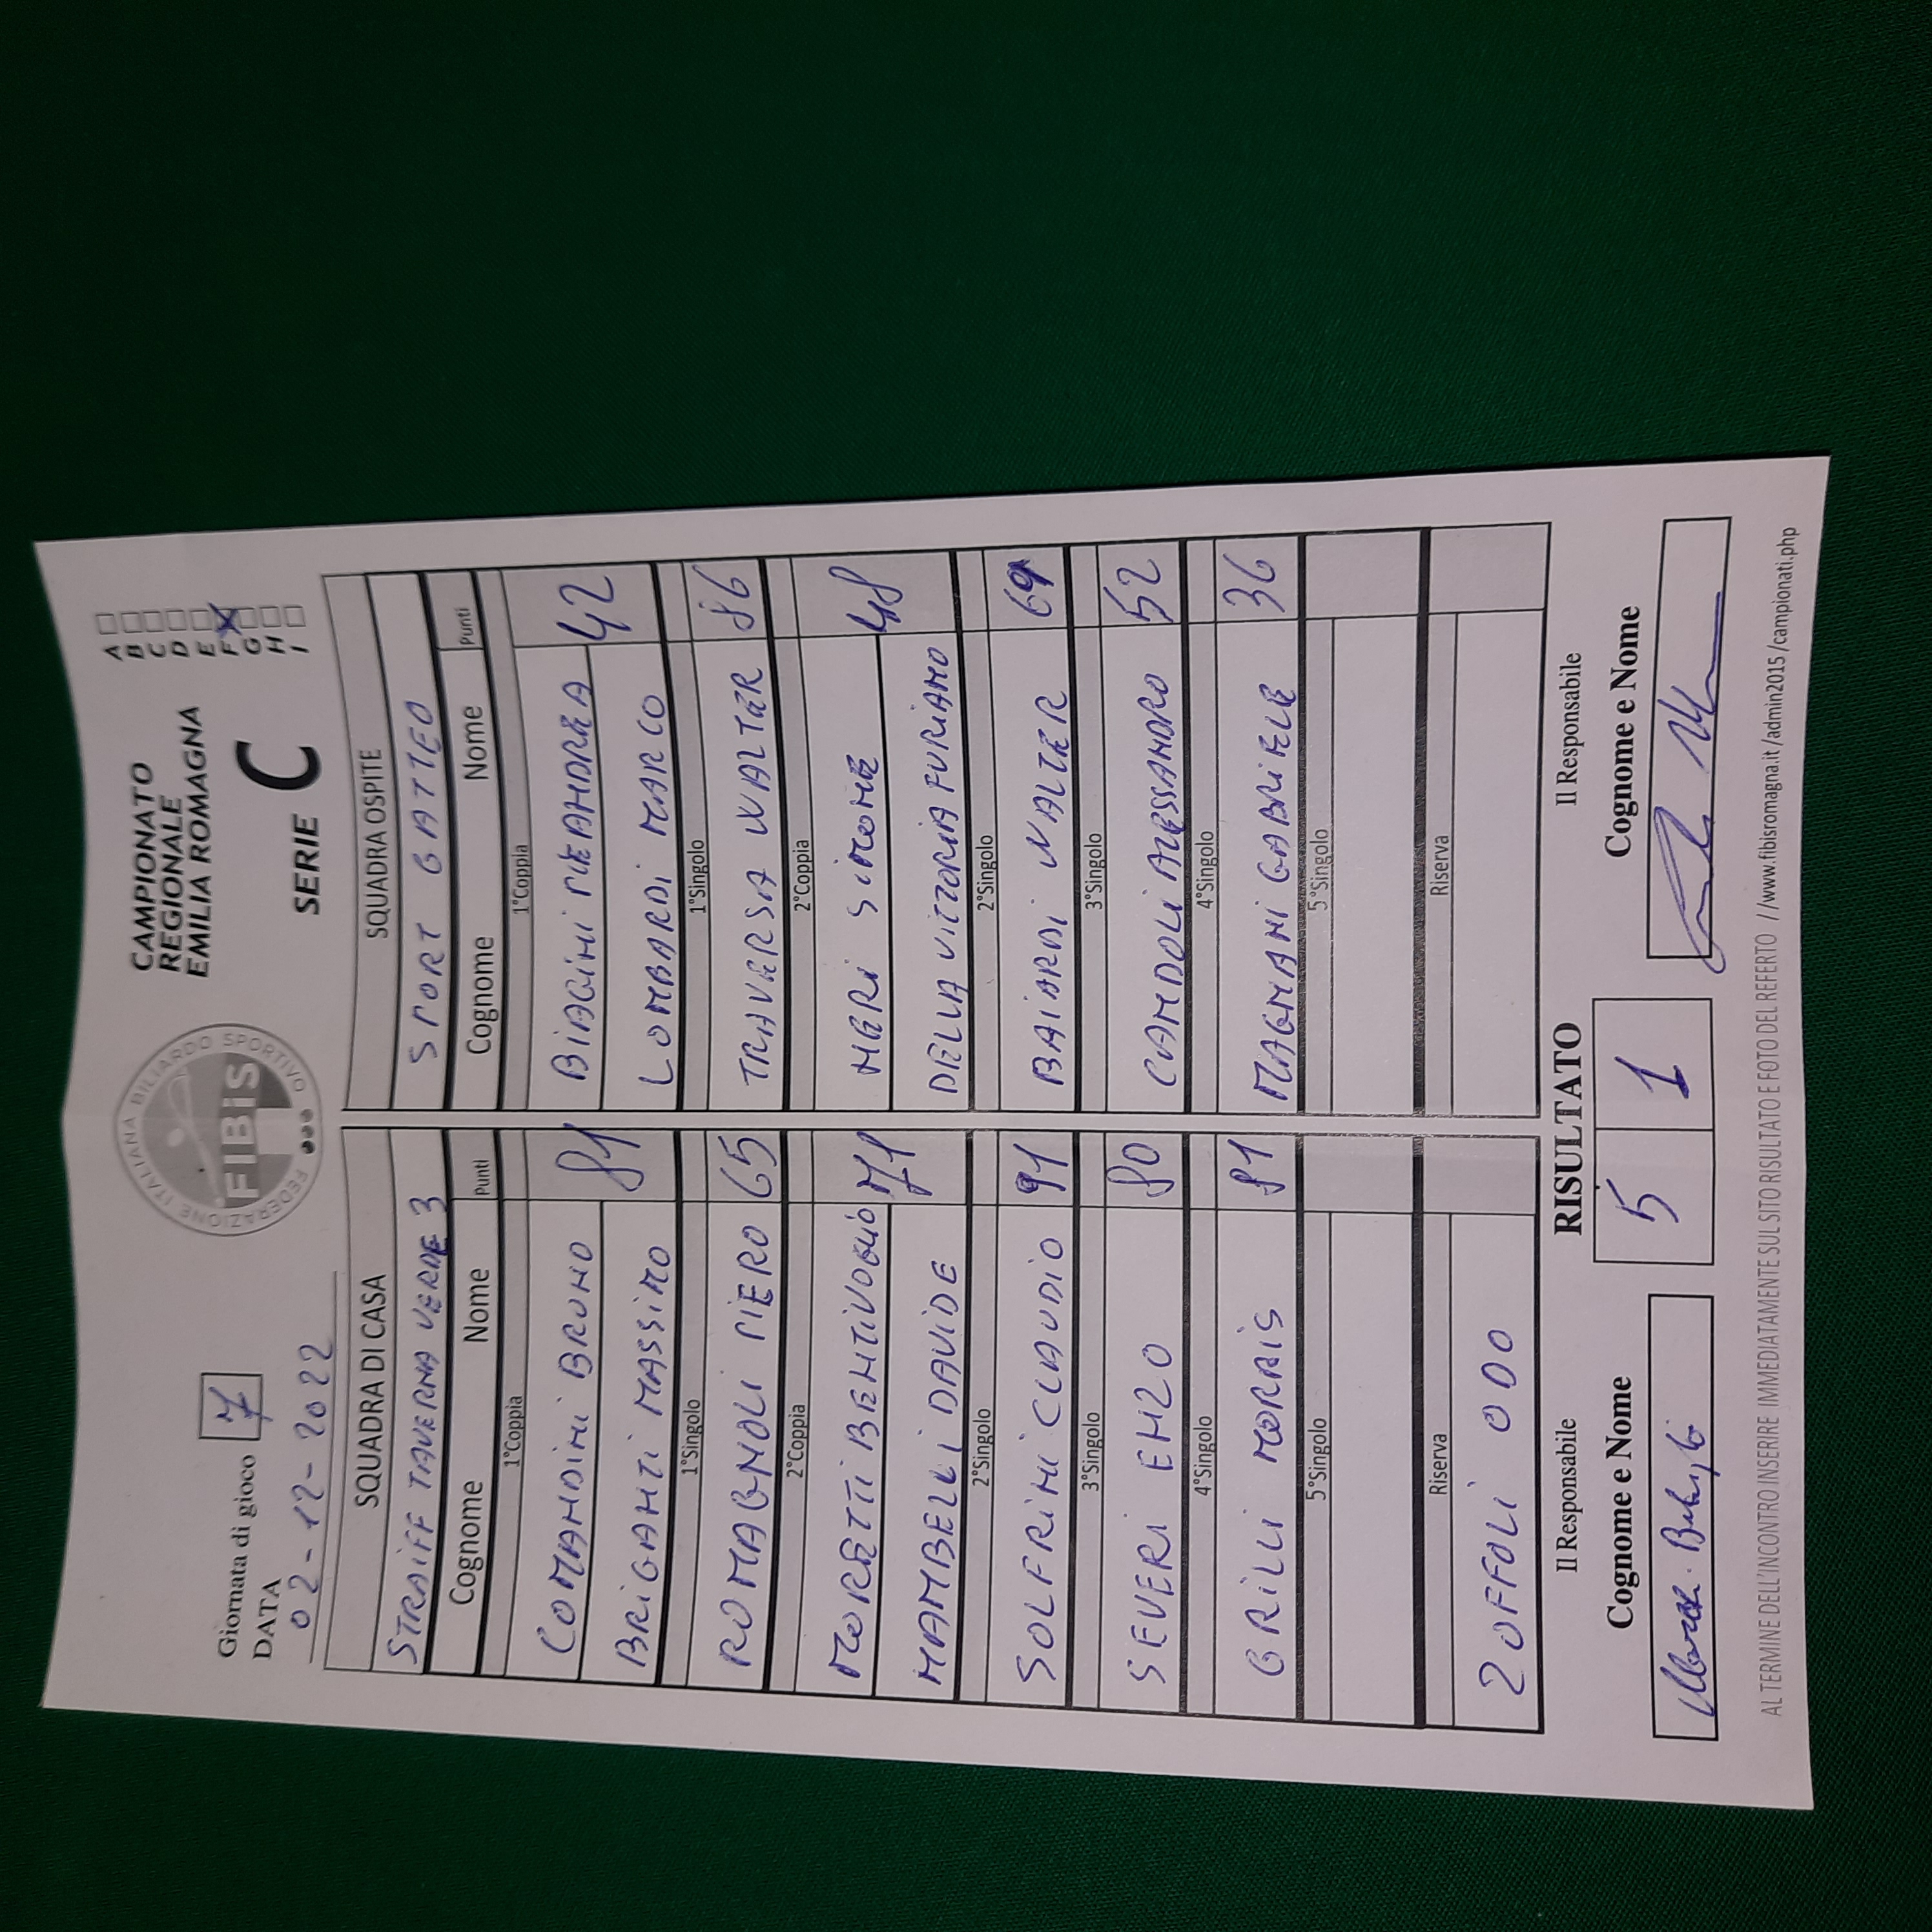 Giornata di gioco 7
DATA
02-12-2022
FEDERAZIONE ITALIANA BILIARDO SPORTIVO
FIBiS
CAMPIONATO
REGIONALE
EMILIA ROMAGNA
SERIE C
A
B
C
D
E
F X
G
H
I
SQUADRA DI CASA SQUADRA OSPITE
STRAiFF TAVERNA VERDE 3 SPORT GATTEO
Cognome Nome Punti Cognome Nome Punti
1°Coppia 1°Coppia
COMANDiNi BRUNO 81 BiAGiNi PiEANDREA 42
BRiGANTi MASSiMO LOMBARDi MARCO
1°Singolo 1°Singolo
ROMAGNOLI PIERO 65 TRAVERSA WALTER 86
2°Coppia 2°Coppia
MORETTi BENTiVOGLiO 71 NERi SiMONE 48
MAMBELLi DAViDE DELLA ViTTORiA FURiANO
2°Singolo 2°Singolo
SOLFRiNi CLAUDiO 91 BAiARDi VALTER 69
3°Singolo 3°Singolo
SEVERi ENZO 80 CAMDOLi ALESSANDRO 52
4°Singolo 4°Singolo
GRiLLi MORAiS 81 MAGNANi GABRiELE 36
5°Singolo 5°Singolo
Riserva Riserva
ZOFFOLi ODO
Il Responsabile RISULTATO Il Responsabile
Cognome e Nome 5 1 Cognome e Nome
AL TERMINE DELL'INCONTRO INSERIRE IMMEDIATAMENTE SUL SITO RISULTATO E FOTO DEL REFERTO //www.fibisromagna.it/admin2015/campionati.php